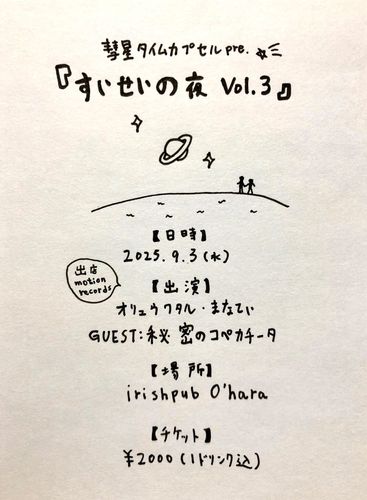 彗星タイムカプセル pre.
『すいせいの夜 Vol.3』
【日時】
2025.9.3(水)
出店
motion
records
【出演】
オリュウワタル・まなてぃ
GUEST:秘密のコペカチータ
【場所】
irishpub O'hara
【チケット】
¥2000(1ドリンク込)